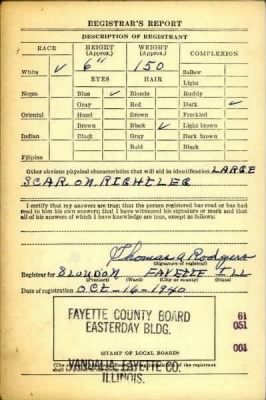 REGISTRAR'S REPORT
DESCRIPTION OF REGISTRANT
RACE HEIGHT (Approx.) WEIGHT (Approx.) COMPLEXION
White ✓ 6" 150 Sallow
EYES HAIR Light
Negro Blue ✓ Blonde Ruddy
Gray Red Dark ✓
Oriental Hazel Brown Freckled
Brown Black ✓ Light brown
Indian Black Gray Dark brown
Bald Black
Filipino
Other obvious physical characteristics that will aid in identification LARGE
SCAR ON RIGHT LEG
I certify that my answers are true; that the person registered has read or has had
read to him his own answers; that I have witnessed his signature or mark and that
all of his answers of which I have knowledge are true, except as follows:
Thomas A Rodgers
(Signature of registrar)
Registrar for FAYETTE ILL
(Precinct) (Ward) (City or county) (State)
Date of registration OCT-16-1940
FAYETTE COUNTY BOARD
EASTERDAY BLDG.
61
051
001
(STAMP OF LOCAL BOARD)
VANDALIA, FAYETTE CO.
ILLINOIS.